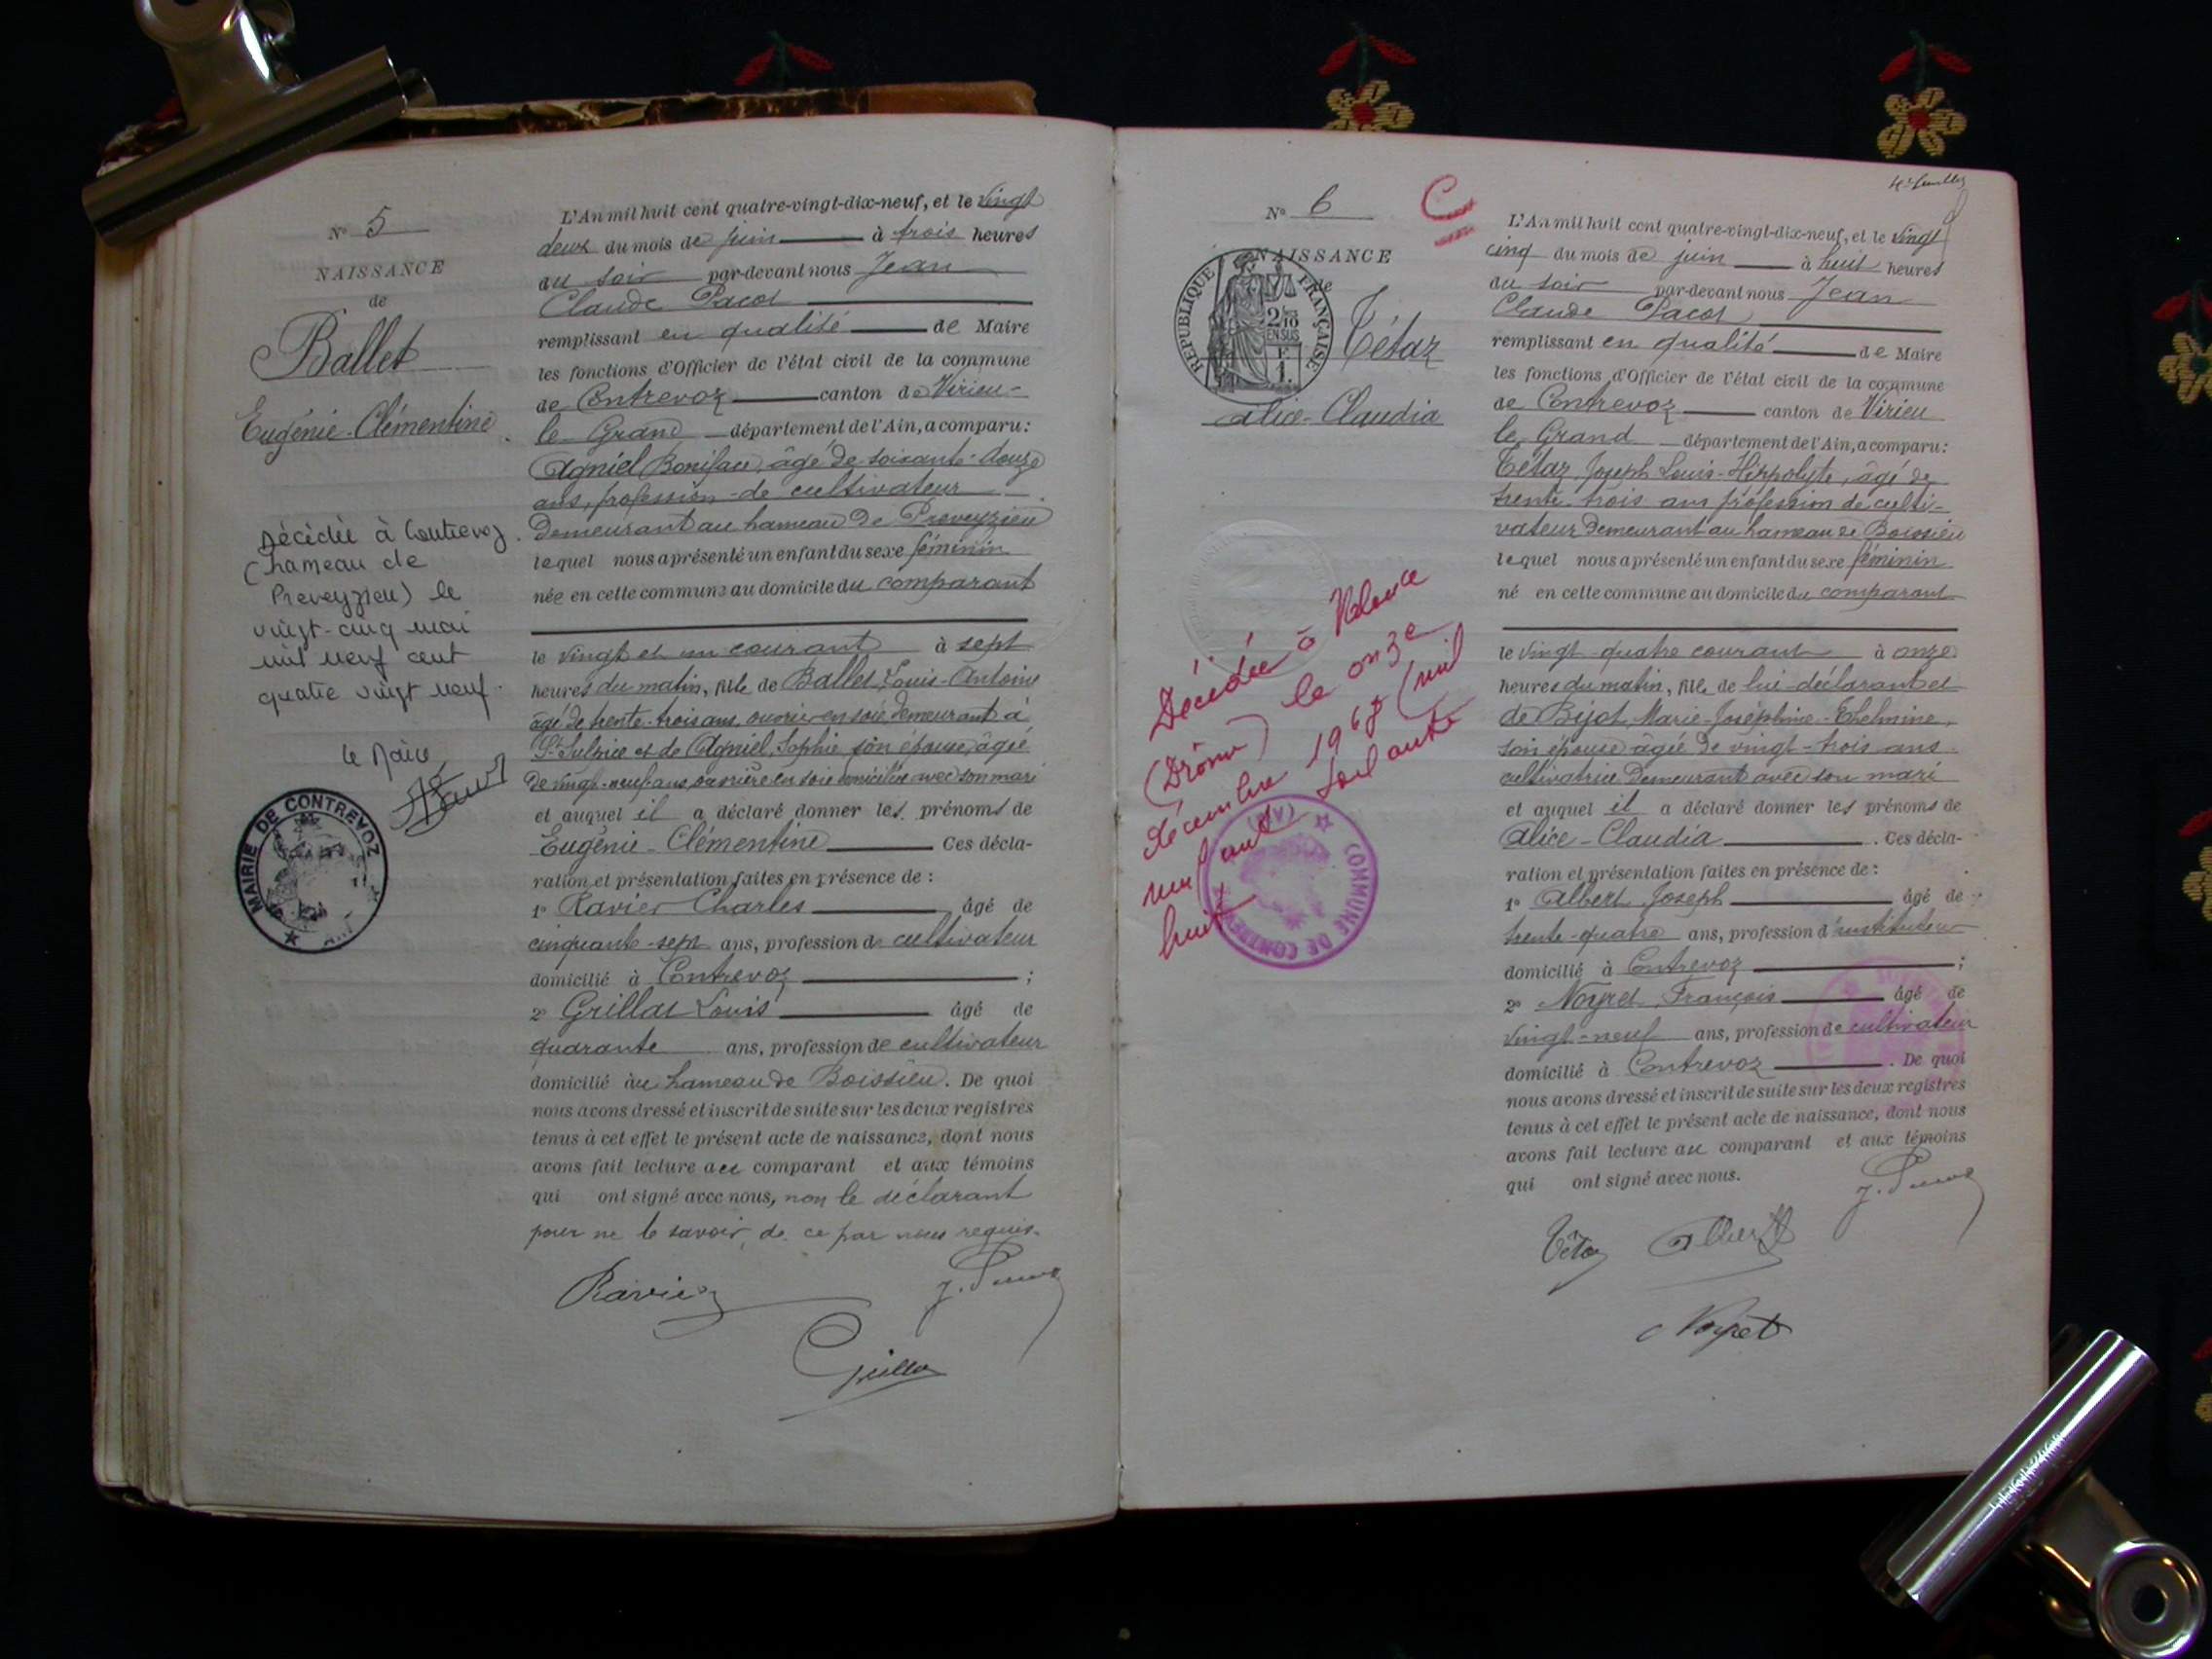 N° 5
NAISSANCE
de
Ballet
Eugénie-Clémentine
Décédée à Contrevoz
(hameau de
Preveyzieu) le
vingt-cinq mai
mil neuf cent
quatre vingt neuf.
le Maire
MAIRIE DE CONTREVOZ
L'An mil huit cent quatre-vingt-dix-neuf, et le vingt
deux du mois de juin à trois heures
du soir par-devant nous Jean
Claude Pacot
remplissant en qualité de Maire
les fonctions d'Officier de l'état civil de la commune
de Contrevoz canton de Virieu-
le Grand département de l'Ain, a comparu:
Agniel Boniface, âgé de soixante-douze
ans, profession de cultivateur
demeurant au hameau de Preveyzieu
lequel nous a présenté un enfant du sexe féminin
née en cette commune au domicile du comparant
le vingt et un courant à sept
heures du matin, fille de Ballet, Louis-Antoine
âgé de trente-trois ans, ouvrier en soie demeurant à
St Sulpice et de Agniel, Sophie son épouse, âgée
de vingt-neuf ans, ouvrière en soie domiciliée avec son mari
et auquel il a déclaré donner les prénoms de
Eugénie-Clémentine Ces décla-
ration et présentation faites en présence de :
1° Ravier Charles âgé de
cinquante-sept ans, profession de cultivateur
domicilié à Contrevoz ;
2° Grillat Louis âgé de
quarante ans, profession de cultivateur
domicilié au hameau de Boissieu. De quoi
nous avons dressé et inscrit de suite sur les deux registres
tenus à cet effet le présent acte de naissance, dont nous
avons fait lecture au comparant et aux témoins
qui ont signé avec nous, non le déclarant
pour ne le savoir, de ce par nous requis.
Ravier
Grillat
N° 6
C
NAISSANCE
de
RÉPUBLIQUE FRANÇAISE
2/10
EN SUS
Tétaz
Alice-Claudia
Décédée à Valence
(Drôme) le onze
décembre 1968 (mil
neuf cent soixante
huit
COMMUNE DE CONTREVOZ (AIN)
L'An mil huit cent quatre-vingt-dix-neuf, et le vingt
cinq du mois de juin à huit heures
du soir par-devant nous Jean
Claude Pacot
remplissant en qualité de Maire
les fonctions d'Officier de l'état civil de la commune
de Contrevoz canton de Virieu
le Grand département de l'Ain, a comparu:
Tétaz, Joseph Louis-Hippolyte, âgé de
trente-trois ans profession de culti-
vateur demeurant au hameau de Boissieu
lequel nous a présenté un enfant du sexe féminin
né en cette commune au domicile du comparant
le vingt-quatre courant à onze
heures du matin, fille de lui-déclarant et
de Bijot, Marie-Joséphine-Thelmine,
son épouse âgée de vingt-trois ans
cultivatrice demeurant avec son mari
et auquel il a déclaré donner les prénoms de
Alice-Claudia. Ces décla-
ration et présentation faites en présence de :
1° Albert Joseph âgé de
trente-quatre ans, profession d'instituteur
domicilié à Contrevoz ;
2° Noyret, François âgé de
vingt-neuf ans, profession de cultivateur
domicilié à Contrevoz. De quoi
nous avons dressé et inscrit de suite sur les deux registres
tenus à cet effet le présent acte de naissance, dont nous
avons fait lecture au comparant et aux témoins
qui ont signé avec nous.
Tétaz Albert
Noyret